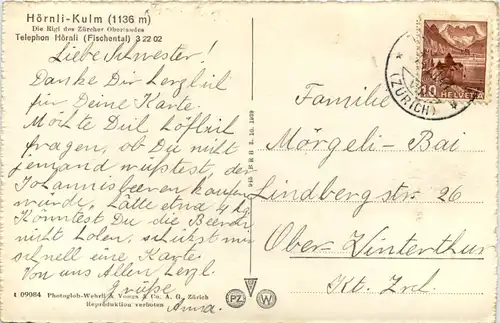 Hörnli-Kulm (1136 m)
Die Rigi des Zürcher Oberlandes
Telephon Hörnli (Fischental) 3 22 02
Liebe Schwester!
Danke Dir herzlich
für Deine Karte.
Möchte Dich höflich
fragen, ob Du nicht
jemand wüsstest, der
Johannisbeeren kaufen
würde, hätte etwa 4 kg
Könntest Du die Beeren
nicht holen, schickst mir
schnell eine Karte.
Von uns Allen herzl.
Grüsse
Anna.
1 09084 Photoglob-Wehrli & Vouga & Co. A. G. Zürich
Reproduktion verboten
PZ W
10 HELVETIA
(ZÜRICH)
Familie
Mörgeli-Bai
Lindbergstr. 26
Ober-Winterthur
Kt. Zrch.